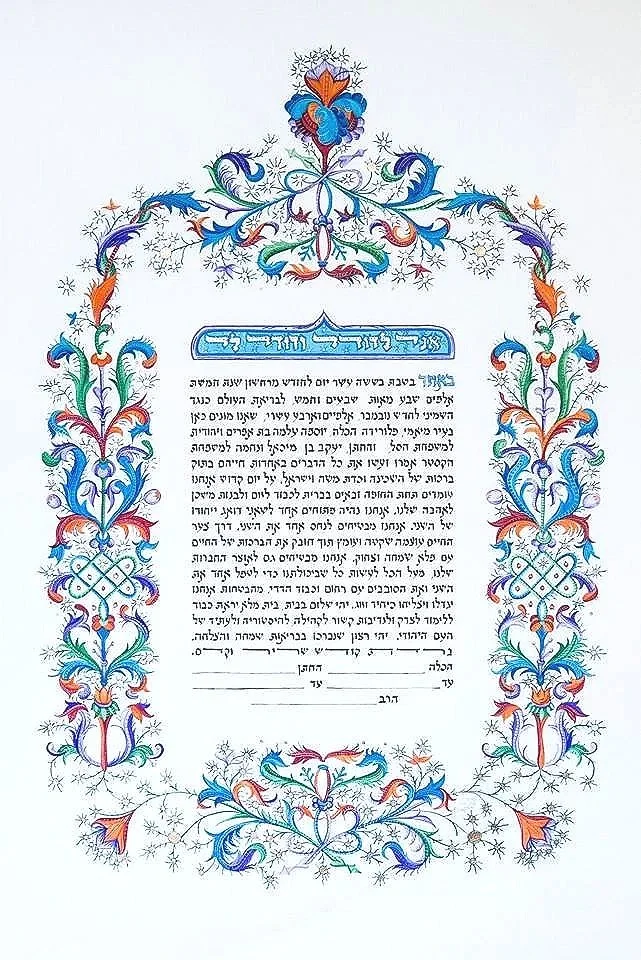 אני לדודי ודודי לי
באחד בשבת בששה עשר יום לחודש מרחשון שנת חמשת
אלפים שבע מאות שבעים וחמש לבריאת העולם כנגד
השמיני לחדש נובמבר אלפיים וארבע עשרי, שאנו מונים כאן
בעיר מיאמי, פלורידה הכלה, יוספה עלמה בת אפרים ויהודית
למשפחת הסל, והחתן, יעקב בן מיכאל ונחמה למשפחת
הקסטר אמרו ועשו את כל הדברים באחדות חייהם בתוק
ברכות של השכינה וכדת משה וישראל, על יום קדוש אנחנו
עומדים תחת החופה ובאים בברית לכבוד ליום ולבנות משכן
לאהבה שלנו, אנחנו נהיה פתוחים אחד לשאני דואג, ייחודו
של השני, אנחנו מבטיחים לנחם אחד את השני, דרך צער
החיים עוצמה שקטה ועומץ תוך חובק את הברכות של החיים
עם פלא שמחה וצחוק, אנחנו מבטיחים גם לאוצר החברות
שלנו, מעל הכל לעשות כל שביכולתנו כדי לטפל אחד את
השני ואת הסובבים עם רחום וכבוד הדדי, מהבטחות אנחנו
יגדלו ויצליחו כיחיד וזוג, יהי שלום בבית, בית מלא יראת כבוד
ללימוד לצדק ולנדיבות קשור לקהילה להיסטוריה ולעתיד של
העם היהודי, יהי רצון שנברכו בבריאות שמחה והצלחה,
שריר וקים.
הכלה החתן
עד עד
הרב